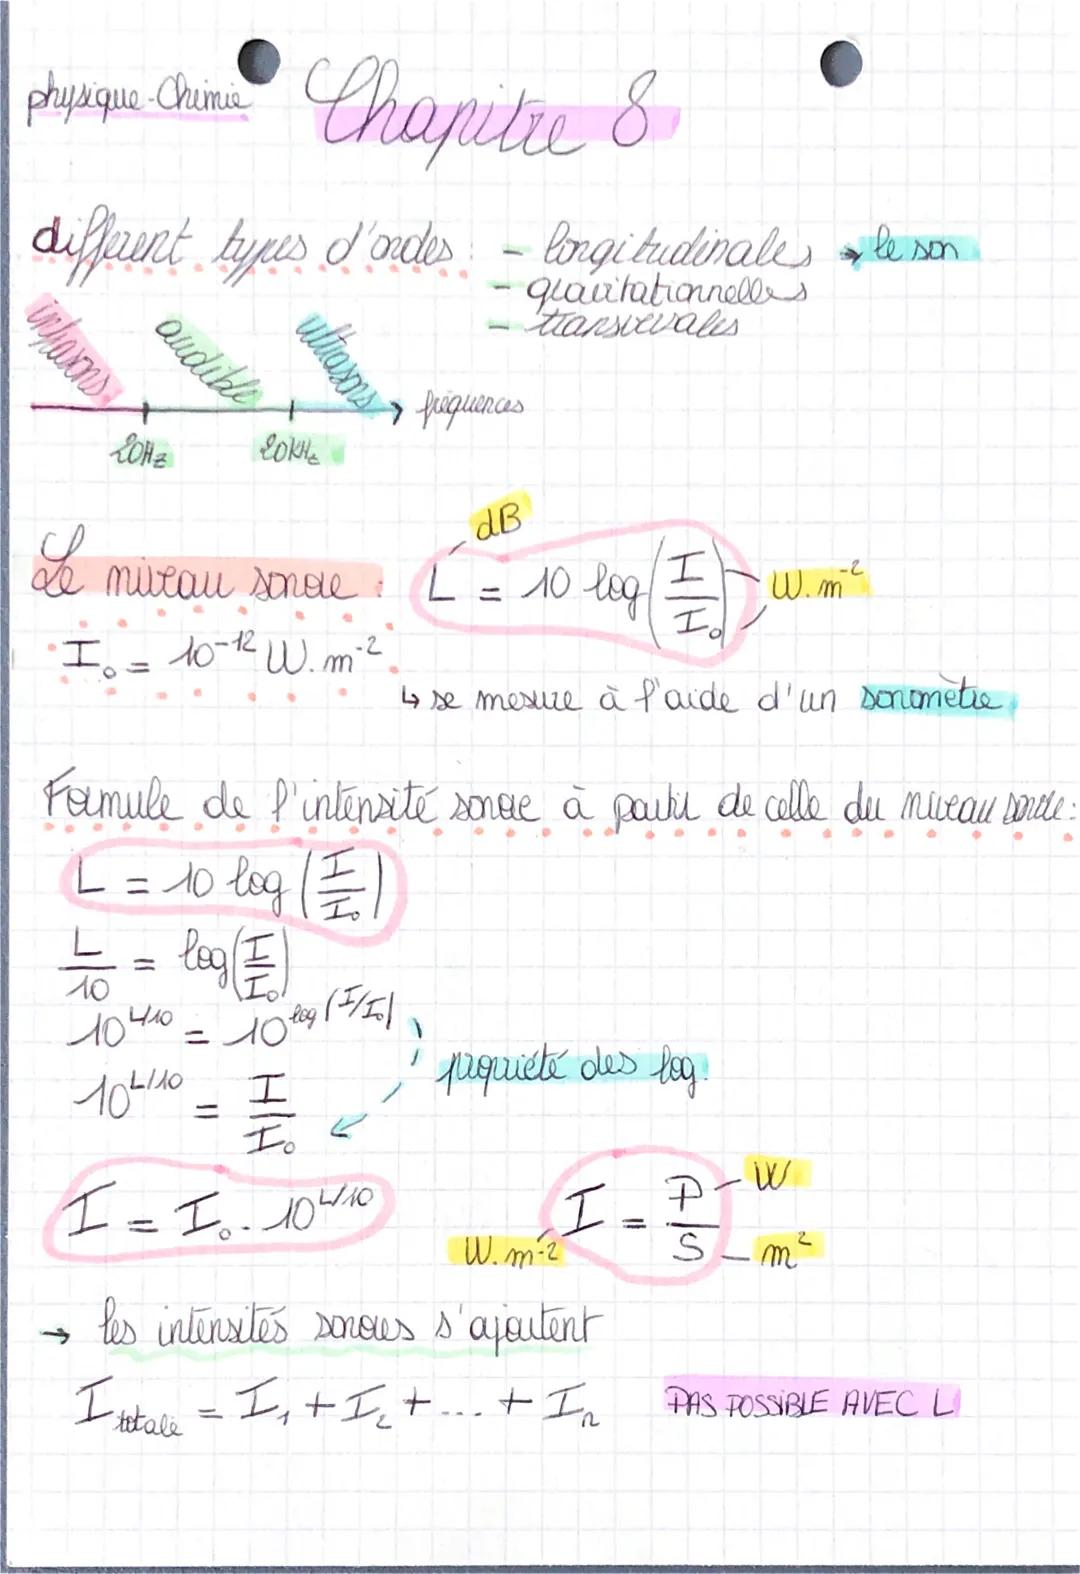 physique-Chimie Chapitre 8
différent types d'ondes : - longitudinales → le son
- gravitationnelles
- transversales
infrasons audible ultrasons
fréquences
20Hz 20kHz
dB
Le niveau sonore : L = 10 log (I/I₀) W.m⁻²
I₀ = 10⁻¹² W.m⁻²
↳ se mesure à l'aide d'un sonomètre
Formule de l'intensité sonore à partir de celle du niveau sonore :
L = 10 log (I/I₀)
L/10 = log (I/I₀)
10^L/10 = 10^log (I/I₀)
propriété des log.
10^L/10 = I/I₀
I = I₀ . 10^L/10
I = P/S
W
W.m⁻² m²
→ les intensités sonores s'ajoutent
I totale = I₁ + I₂ + ... + Iₙ PAS POSSIBLE AVEC L